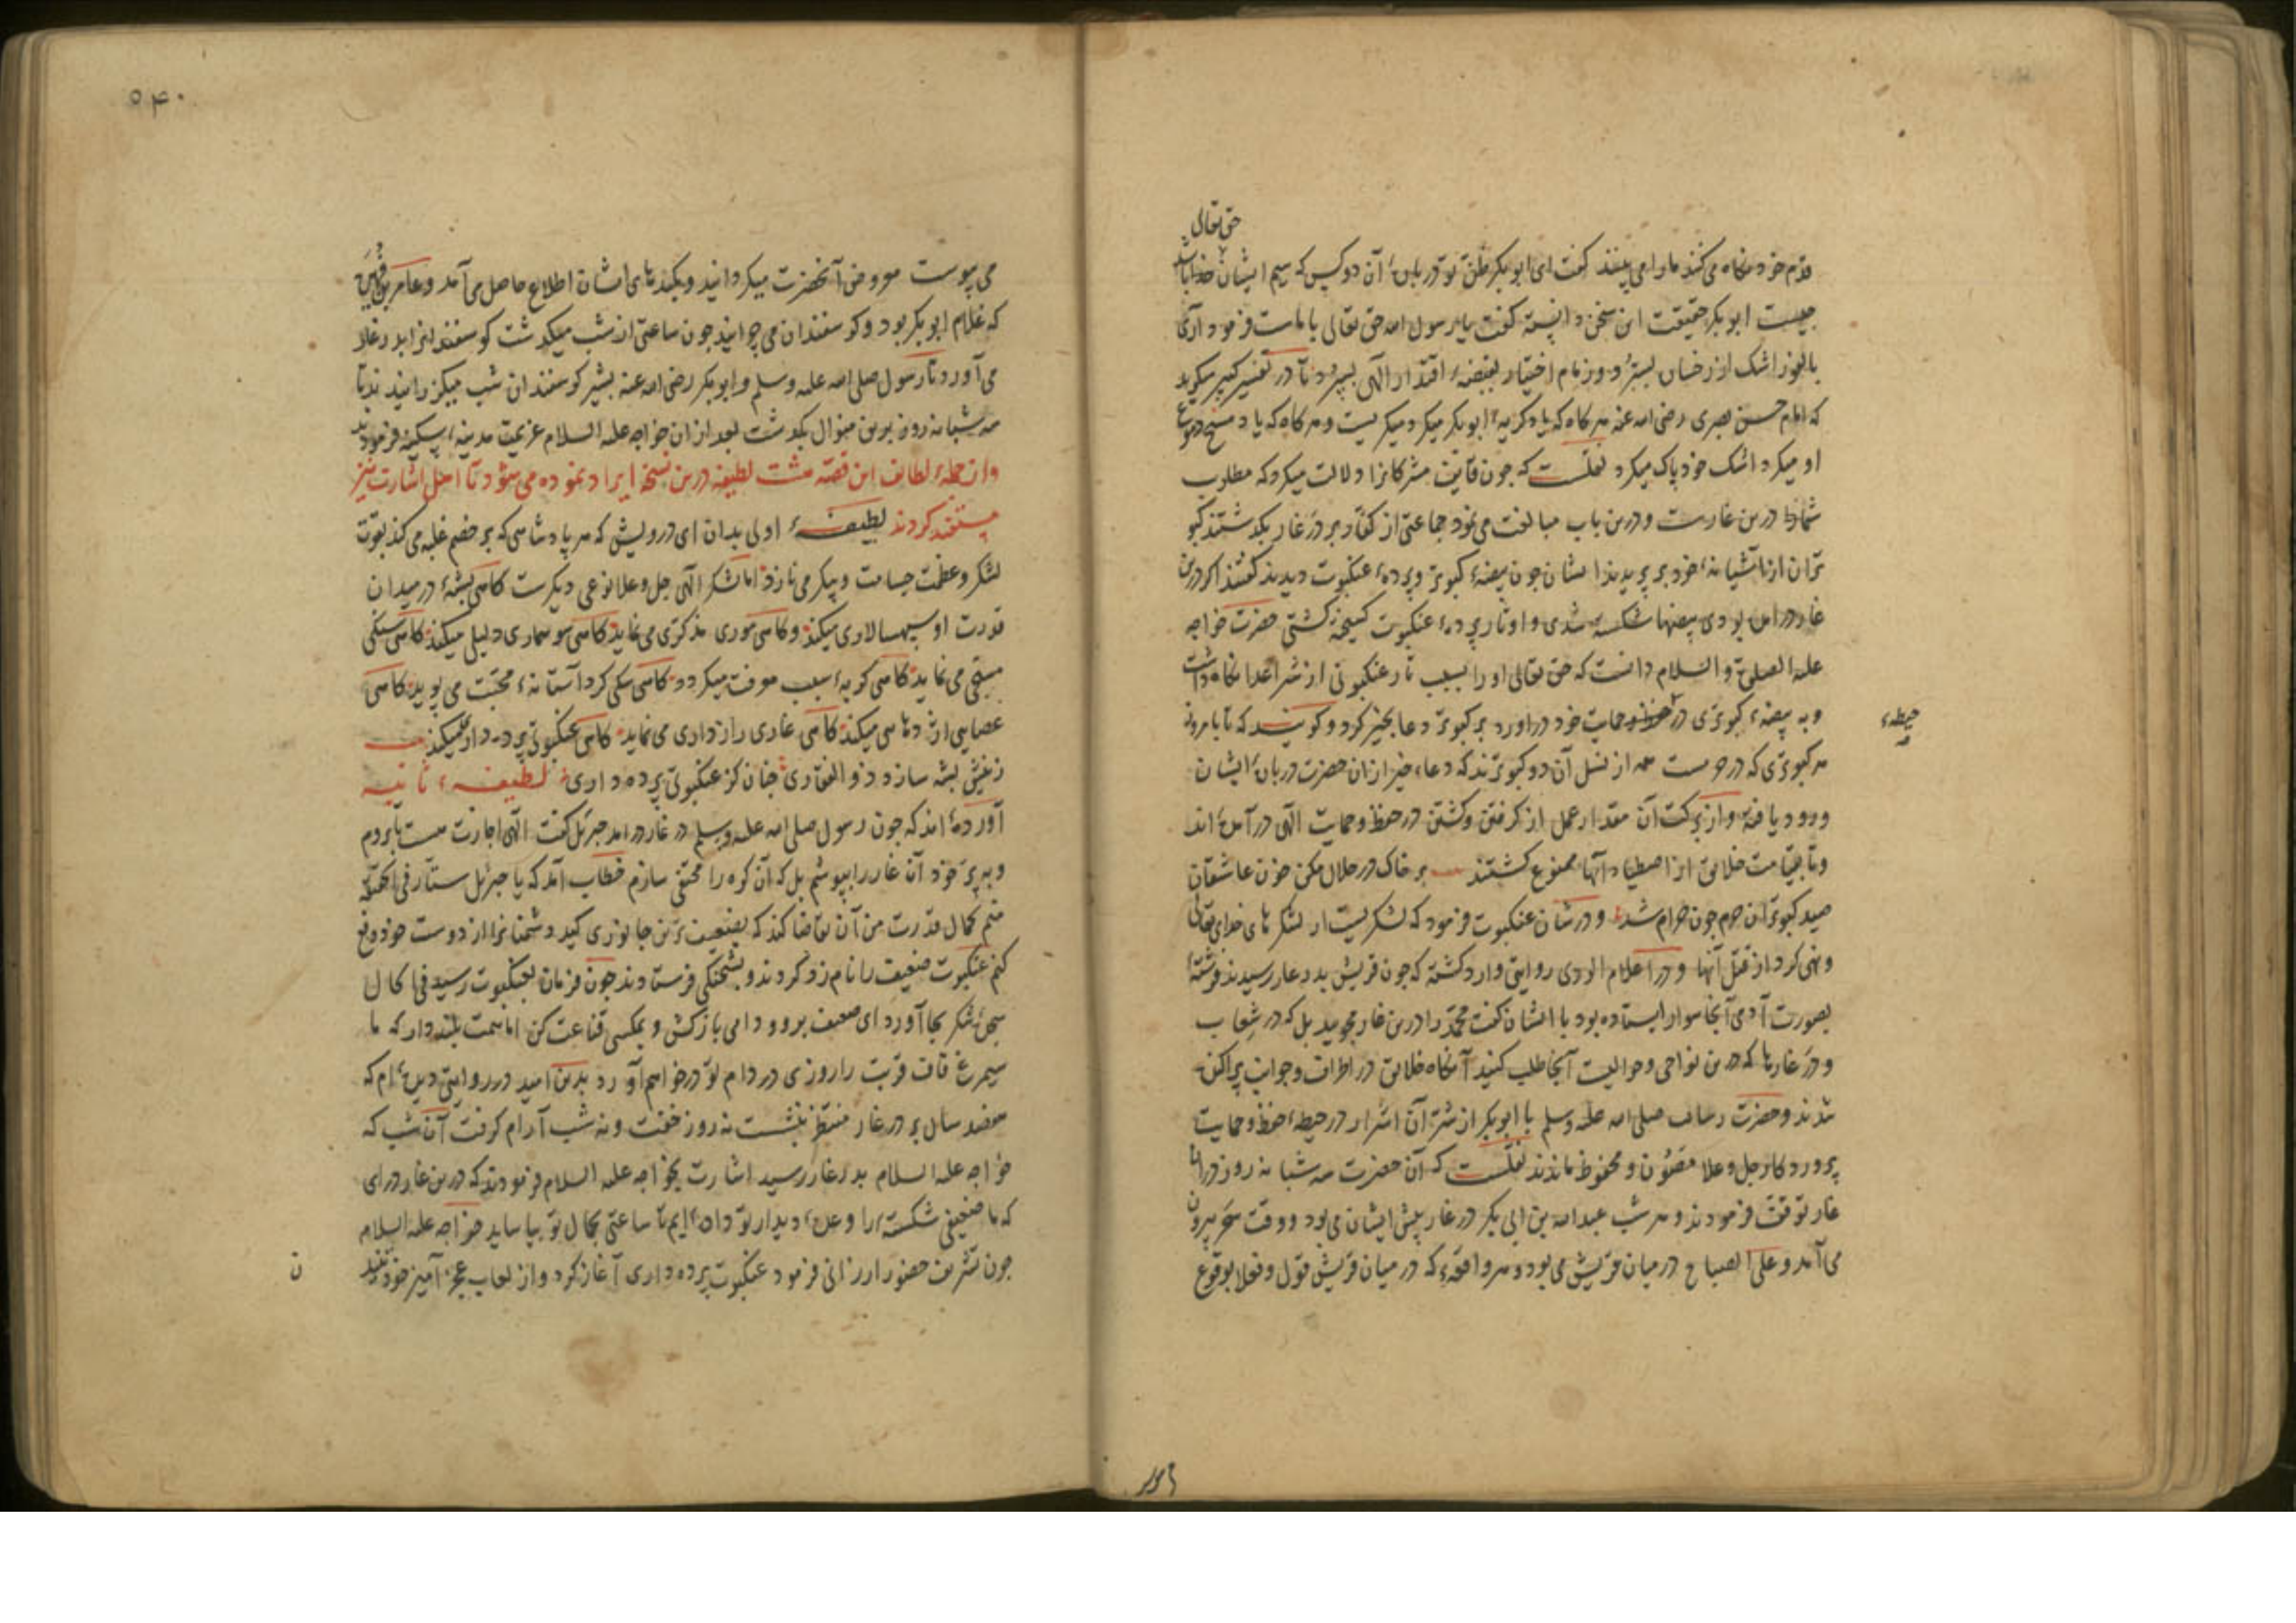 حق تعالی
قدم خود نگاه می کنند ما را می بینند گفت ای ابوبکر ظن تو دربارۀ آن دو کس که سیم ایشان خدا باشد
چیست ابوبکر حقیقت این سخن دانسته گفت یا رسول الله حق تعالی با ماست فرمود آری
بالفور اشک از رخسار بسترد و زمام اختیار بقبضۀ اقتدار الهی بسپرد تا در تفسیر کبیر میگوید
که امام حسن بصری رضی الله عنه هر گاه که یاد گریۀ ابوبکر میکرد میگریست و هر گاه که یاد مسح دموع
او میکرد اشک خود پاک میکرد نقلست که چون قایف مشرکانرا دلالت میکرد که مطلوب
شما در این غارست و درین باب مبالغت می نمود جماعتی از کفار بر در غار بگذشتند کبو
تران از آشیانۀ خود بر پریدند ایشان چون بیضۀ کبوتر و پردۀ عنکبوت دیدند گفتند اگر درین
غار در آمده بودی بیضها شکسته شدی و اوتار پردۀ عنکبوت گسیخته گشتی حضرت خواجه
علیه الصلوة والسلام دانست که حق تعالی او را بسبب تار عنکبوتی از شر اعدا نگاه داشت
و به بیضۀ کبوتری در حفظ و حمایت خود در آورد بر کبوتر دعا بخیر کرد و گویند که تا بامروز
حیطۀ
هر کبوتری که در حرمست همه از نسل آن دو کبوترند که دعاء خیر از آن حضرت دربارۀ ایشان
ورود یافته و از برکت آن مقدار عمل از گرفتن و کشتن در حفظ و حمایت الهی در آمده اند
و تا بقیامت خلایق از اصطیاد آنها ممنوع گشتند بر خاک در حلال مکن خون عاشقان
صید کبوتران حرم چون حرام شد و در شان عنکبوت فرمود که لشکریست از لشکر های خدای تعالی
و نهی کرد از قتل آنها و در اعلام الوری روایتی وارد گشته که چون قریش بدر غار رسیدند فرشتۀ
بصورت آدمی آنجا سوار ایستاده بود با ایشان گفت محمد را درین غار مجویید بل که در شعاب
و در غارها که درین نواحی و حوالیست آنجا طلب کنید آنگاه خلایق در اطراف و جوانب پراکنده
شدند و حضرت رسالت صلی الله علیه وسلم با ابوبکر از شر آن اشرار در حیطۀ حفظ و حمایت
پروردگار جل و علا مصون و محفوظ ماندند نقلست که آن حضرت سه شبانه روز در آن
غار توقف فرمودند و هر شب عبدالله بن ابی بکر در غار پیش ایشان می بود و وقت سحر بیرون
می آمد و علی الصباح در میان قریش می بود و هر واقعۀ که در میان قریش قولا و فعلا بوقوع
۵۴۰
می پیوست معروض آنحضرت میگردانید و بکیدهای ایشان اطلاع حاصل می آمد و عامر بن فهیره
که غلام ابوبکر بود و گوسفندان می چرانید چون ساعتی از شب میگذشت گوسفندانرا بدر غار
می آورد تا رسول صلی الله علیه وسلم و ابوبکر رضی الله عنه بشیر گوسفندان شب میگذرانیدند تا
سه شبانه روز برین منوال بگذشت بعد از آن خواجه علیه السلام عزیمت مدینۀ سکینه فرمودند
و از جملۀ لطایف این قصه هشت لطیفه درین نسخه ایراد نموده می شود تا اهل اشارت نیز
مستفید گردند لطیفۀ اولی بدان ای درویش که هر پادشاهی که بر خصم غلبه می کند بقوت
لشکر و عظمت جسامت و پیکر می نازد اما لشکر الهی جل و علا نوعی دیگرست گاهی پشۀ در میدان
قدرت او سپهسالاری میکند و گاهی موری مذکری می نماید گاهی سوسماری دلیلی میکند گاهی سنگی
مسبحی می نماید گاهی گربۀ سبب معرفت میگردد گاهی سگی گرد آستانۀ محبت می پوید گاهی
عصایی اژدهایی میکند گاهی غاری رازداری می نماید گاهی عنکبوتی پرده داری میکند
ز نیش پشه سازد ذوالفقاری چنان کز عنکبوتی پرده داری لطیفۀ ثانیه
آورده اند که چون رسول صلی الله علیه وسلم در غار در آمد جبرئیل گفت الهی اجازت هست تا بروم
و به پر خود آن غار را بپوشم بل که آن کوه را مختفی سازم خطاب آمد که یا جبرئیل ستار فی الحقیقه
منم کمال قدرت من آن تقاضا کند که بضعیف ترین جانوری کید دشمنانرا از دوست خود دفع
کنم عنکبوت ضعیف را نامزد کردند و بشحنگی فرستادند چون فرمان بعنکبوت رسید فی الحال
سجدۀ شکر بجا آورد ای ضعیف برو و دامی باز کش و بمگسی قناعت کن اما همت بلند دار که ما
سیمرغ قاف قربت را روزی در دام تو در خواهیم آورد بدین امید در روایتی دیده ام که
هفتصد سال بر در غار منتظر بنشست نه روز خفت و نه شب آرام گرفت آن شب که
خواجه علیه السلام بدر غار رسید اشارت بخواجه علیه السلام فرمودند که درین غار در آی
که ما ضعیفی شکستۀ را وعدۀ دیدار تو داده ایم تا ساعتی بجمال تو بیاساید خواجه علیه السلام
چون تشریف حضور ارزانی فرمود عنکبوت پرده داری آغاز کرد و از لعاب عجز آمیز خود تنید